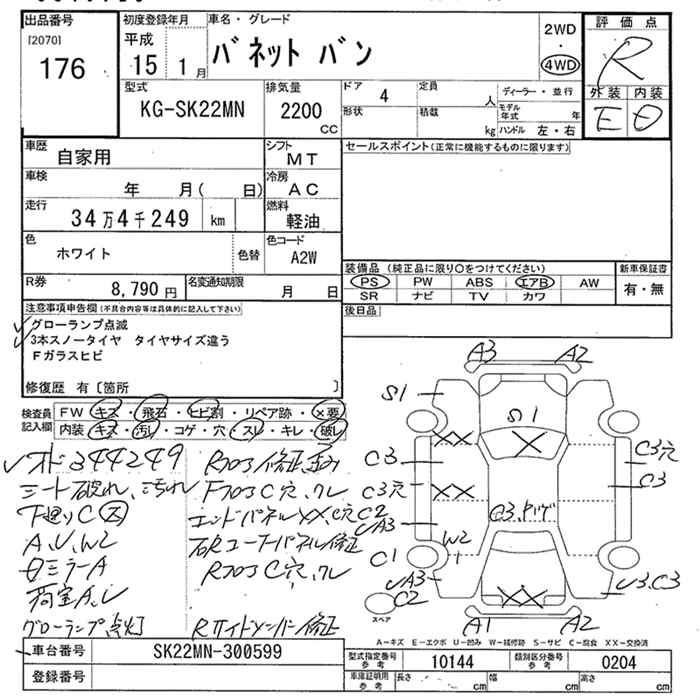 出品番号 初度登録年月 車名・グレード 2WD・4WD 評価点
[2070]
176 平成 15年 1月 バネット バン R
外装 内装
E D
型式 排気量 ドア 定員 ディーラー・並行
KG-SK22MN 2200 cc 4 人
形状 積載 kg モデル年式 年
ハンドル 左・右
車歴 自家用 シフト MT セールスポイント(正常に機能するものに限ります)
車検 年 月( 日) 冷房 AC
走行 34万4千249 km 燃料 軽油
色 ホワイト 色替 色コード A2W
装備品 (純正品に限り○をつけてください) 新車保証書
PS PW ABS エアB AW 有・無
SR ナビ TV カワ
R券 8,790円 名変通知期限 月 日
後日品
注意事項申告欄(不具合内容等は具体的に記入して下さい)
グローランプ点滅
3本スノータイヤ タイヤサイズ違う
Fガラスヒビ
修復歴 有〔箇所 〕
検査員記入欄
FW キズ・飛石・ヒビ割・リペア跡・×要
内装 キズ・汚レ・コゲ・穴・スレ・キレ・破レ
オド344249 Rフロア修正済み
シート破れ、汚れ Fフロア C穴、クレ
下廻りC
エンドパネルXX、C穴C2
A,U,W2
ミラーA
Rフロア C穴、クレ
荷室A,U
グローランプ点灯 Rサイドメンバー修正
A3 A2
S1 S1
XX X
C3 C3穴
C3穴 XX C3
UA3
C1 W2
UA3 XX U3.C3
C2
スペア
A1 A2
A-キズ E-エクボ U-凹み W-補修跡 S-サビ C-腐食 XX-交換済
車台番号 SK22MN-300599
登録番号
型式指定番号 参考 10144 類別区分番号 参考 0204
車庫証明用 参考 長さ cm 幅 cm 高さ cm